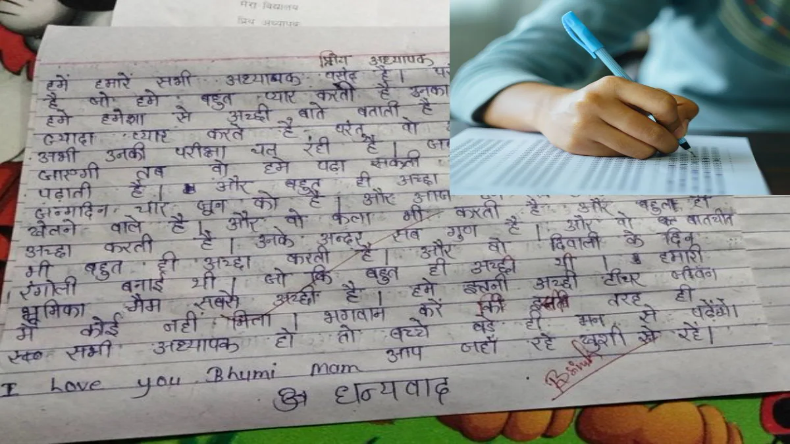 मेरा विद्यालय
प्रिय अध्यापक
प्रिय अध्यापक
हमें हमारे सभी अध्यापक पसंद है।
है जो हमे बहुत प्यार करती है उनका
हमे हमेशा से अच्छी बाते बताती है
ज्यादा प्यार करते है परंतु वो
अभी उनकी परीक्षा चल रही है।
जाएगी तब वो हमे पढ़ा सकेंगी
पढ़ाती है। और बहुत ही अच्छा
जन्मदिन चार जून को है। और आज
खेलने वाले है। और वो कला भी करती है और बहुत ही
अच्छा करती है। उनके अन्दर सब गुण है। और वो बातचीत
भी बहुत ही अच्छा करती है। और वो दिवाली के दिन
रंगोली बनाई थी। जो कि बहुत ही अच्छी थी। हमारी
भूमिका मैम सबसे अच्छी है। हमें इतनी अच्छी टीचर जीवन
में कोई नहीं मिला। भगवान करें की इसी तरह ही
सभी अध्यापक हो तो बच्चे बड़े ही मन से पढ़ेंगे।
I Love you Bhumi mam आप जहाँ रहें खुशी से रहें।
धन्यवाद